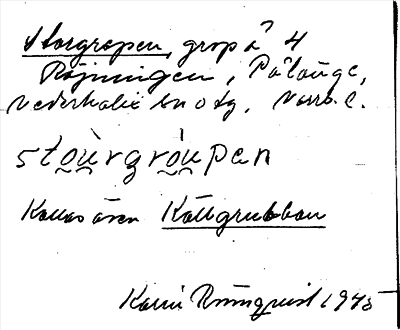 Storgropen, grop å 4
Röjningen, Pålänge,
Nederkalix sn o tg. Norrb. l.
stou̯rgrou̯pen
Kallas även Kattgrubban
Karin Rönnquist 1945